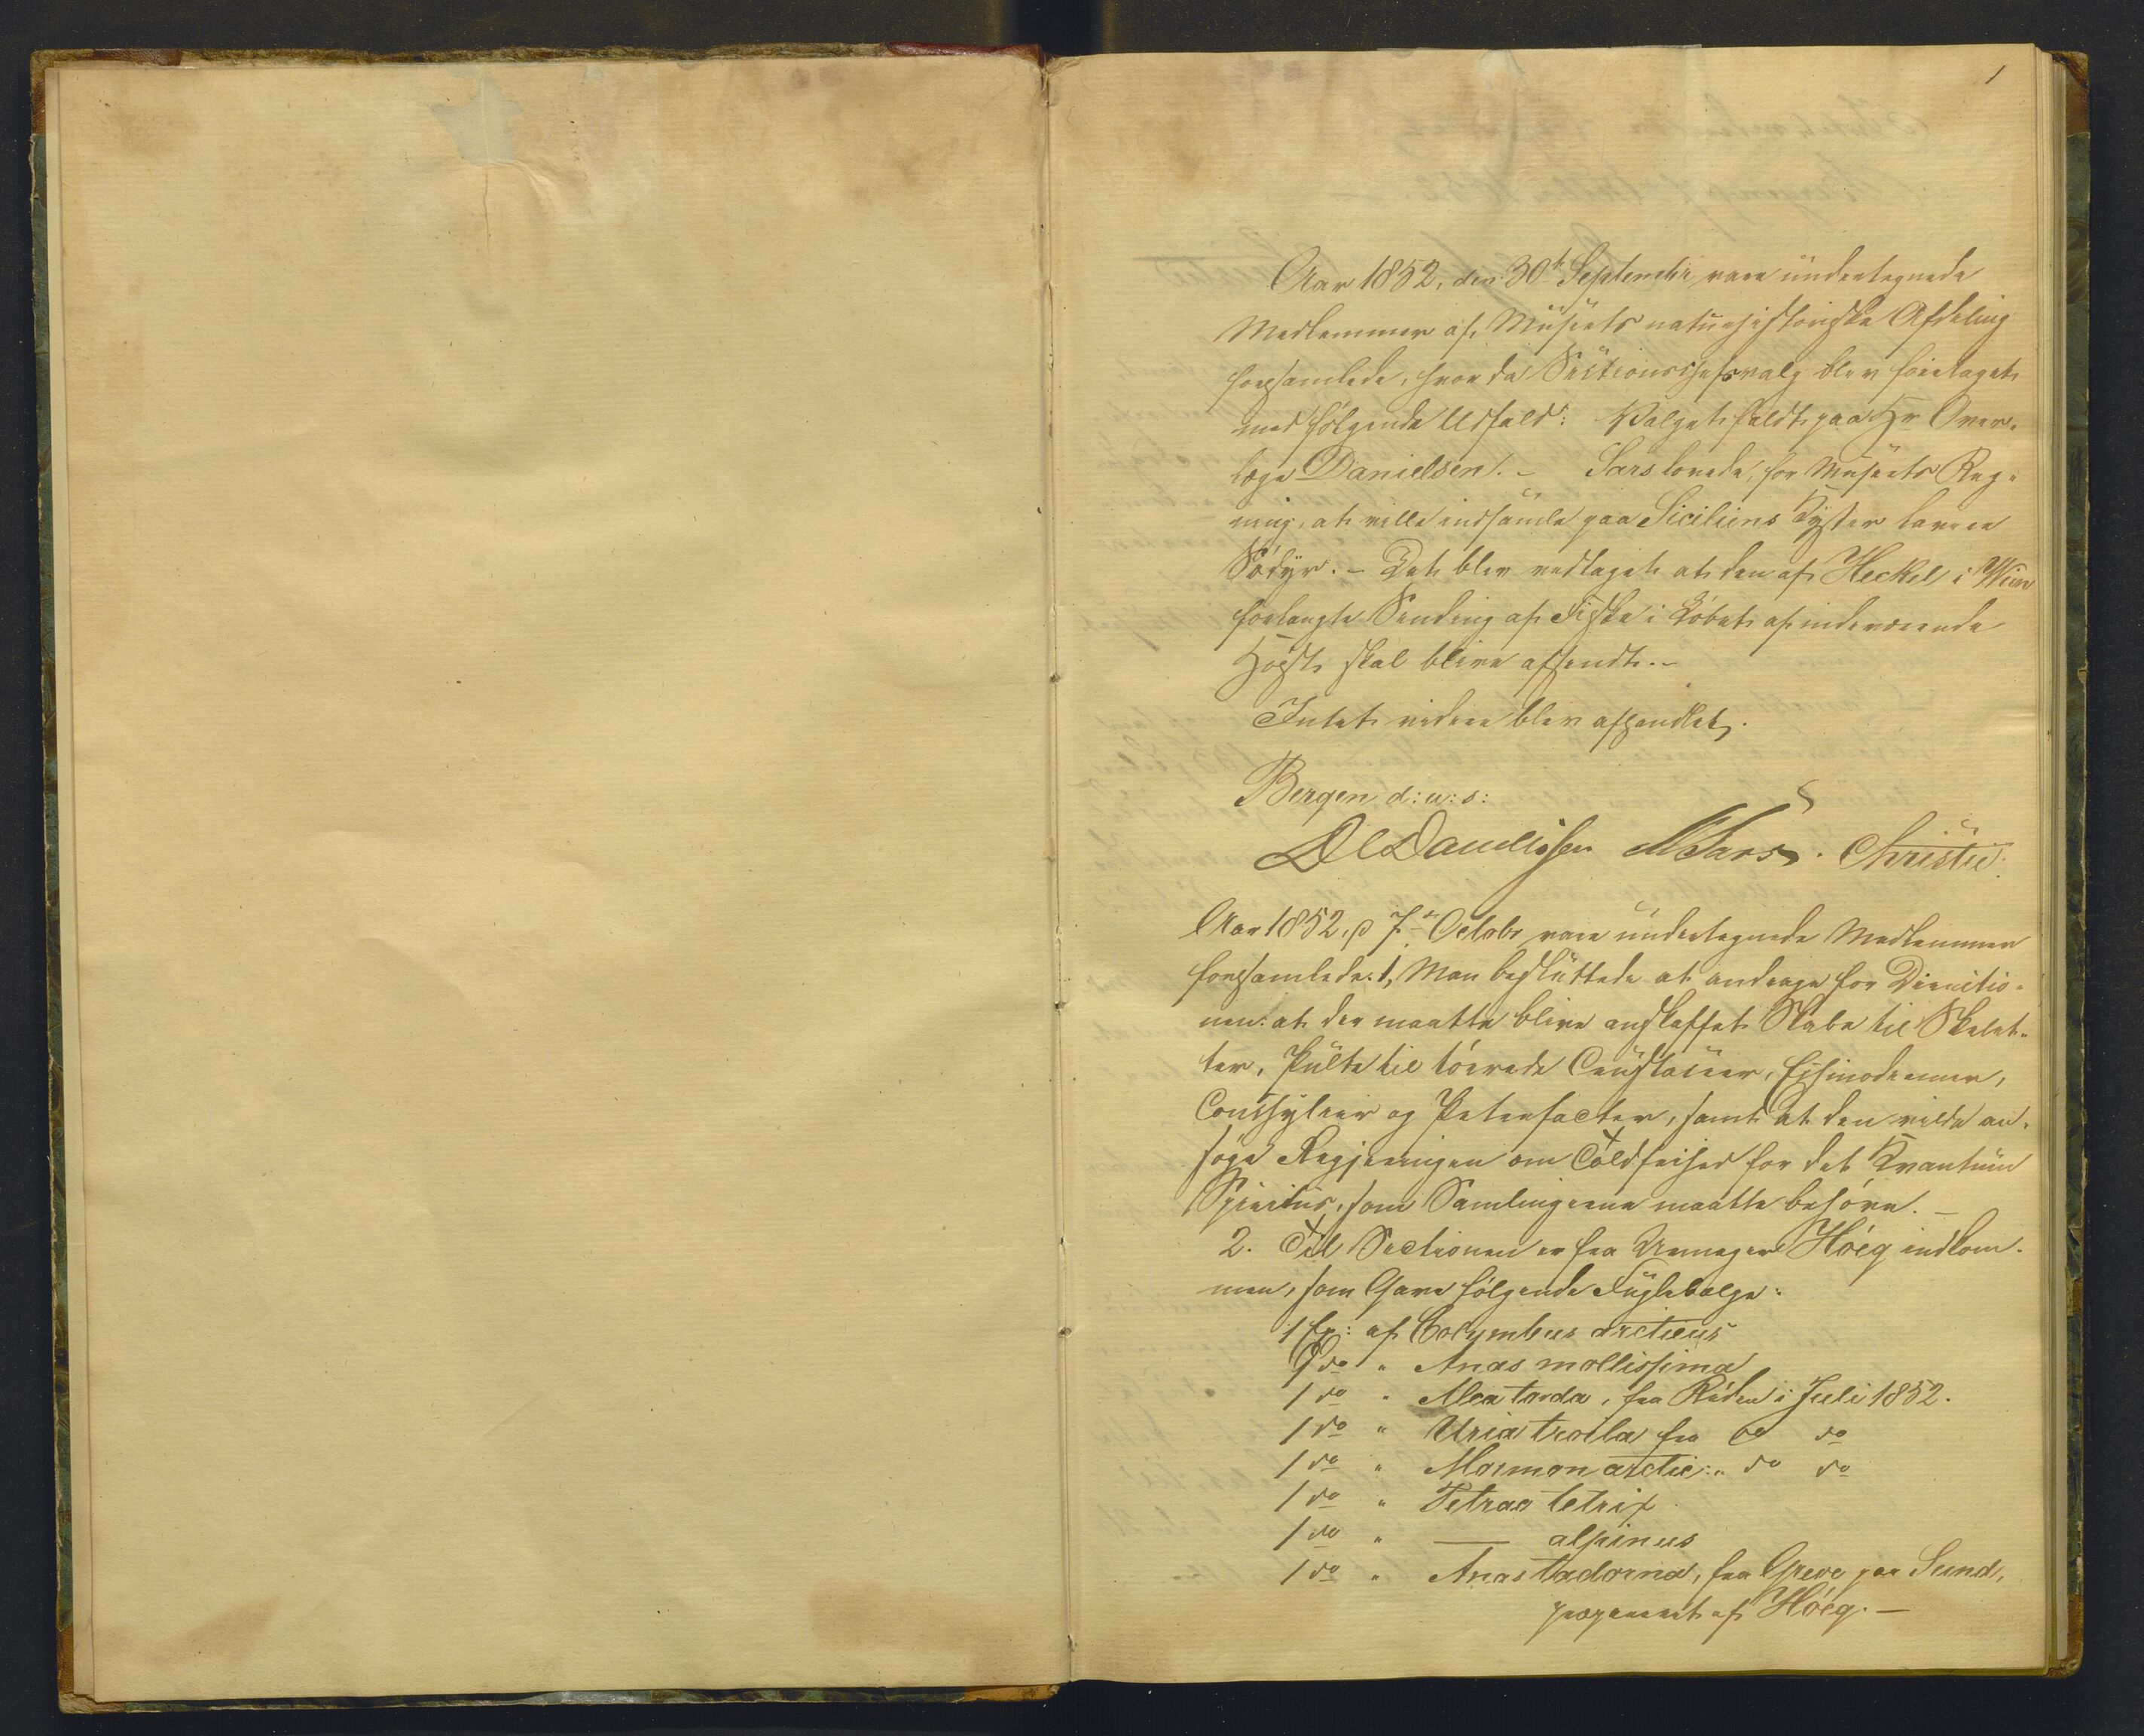 1
Aar 1852, den 30t Septembr vare undertegnede
Medlemmer af Museets naturhistoriske Afdeling
forsamlede, hvor da Sectionschefsvalg blev foretaget
med følgende Udfald: Valget faldt paa Hr Over-
læge Danielsen. – Sars lovede, for Museets Reg-
ning, at ville indsamle paa Siciliens Kyster lavere
Sødyr. – Det blev vedtaget at den af Heckel i Wien
forlangte Sending af Fiske i Løbet af indeværende
Høst skal blive afsendt. –
Intet videre blev afhandlet.
Bergen d: u: s:
DCDanielssen MSars. Christie.
Aar 1852, d 7de Octobr vare undertegnede Medlemmer
forsamlede. 1, Man besluttede at andrage for Directio-
nen: at der maatte blive anskaffet Skabe til Skelet-
ter, Pulte til tørrede Crustaceer, Echinodermer,
Conchylier og Petrefacter, samt at den vilde an-
søge Regjeringen om Toldfrihed for det Kvantum
Spiritus, som Samlingerne maatte behøve. –
2. Til Sectionen er fra Høeg indkom-
men, som Gave følgende Fuglebælge:
1 Ex: af Colymbus arcticus
1 do " Anas mollissima
1 do " Alca torda, fra i Juli 1852.
1 do " Uria troila fra do do
1 do " Mormon arctic: " do do
1 do " Tetrao tetrix
1 do " —— alpinus
1 do " Anas tadorna, fra Greve paa Sund,
præpareret af Høeg. –